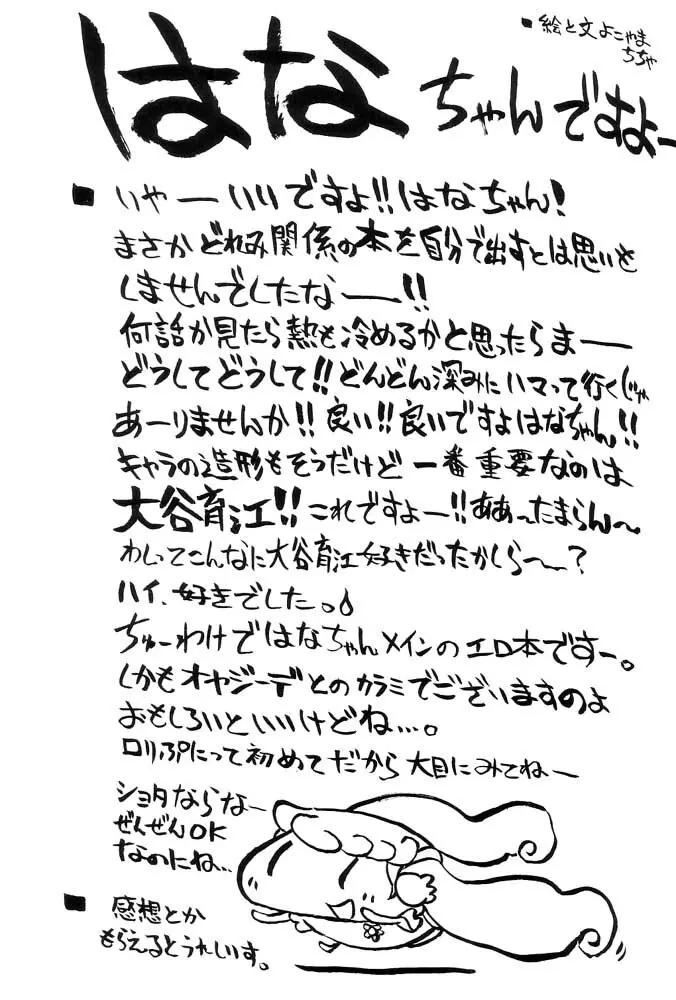 ■絵と文よこやま
ちちゃ
はなちゃんですよー
■いやーいいですよ!!はなちゃん!
まさかどれみ関係の本を自分で出すとは思いも
しませんでしたなー!!
何話か見たら熱も冷めるかと思ったらまー
どうしてどうして!!どんどん深みにハマって行くじゃ
あーりませんか!!良い!!良いですよはなちゃん!!
キャラの造形もそうだけど一番重要なのは
大谷育江!!これですよー!!ああったまらん〜
わしってこんなに大谷育江好きだったかしら〜?
ハイ、好きでした。
ちゅーわけではなちゃんメインのエロ本ですー。
しかもオヤジーデとのカラミでございますのよ
おもしろいといいけどね…。
ロリぷにって初めてだから大目にみてねー
ショタならなー
ぜんぜんOK
なのにね…
■感想とか
もらえるとうれしいす。